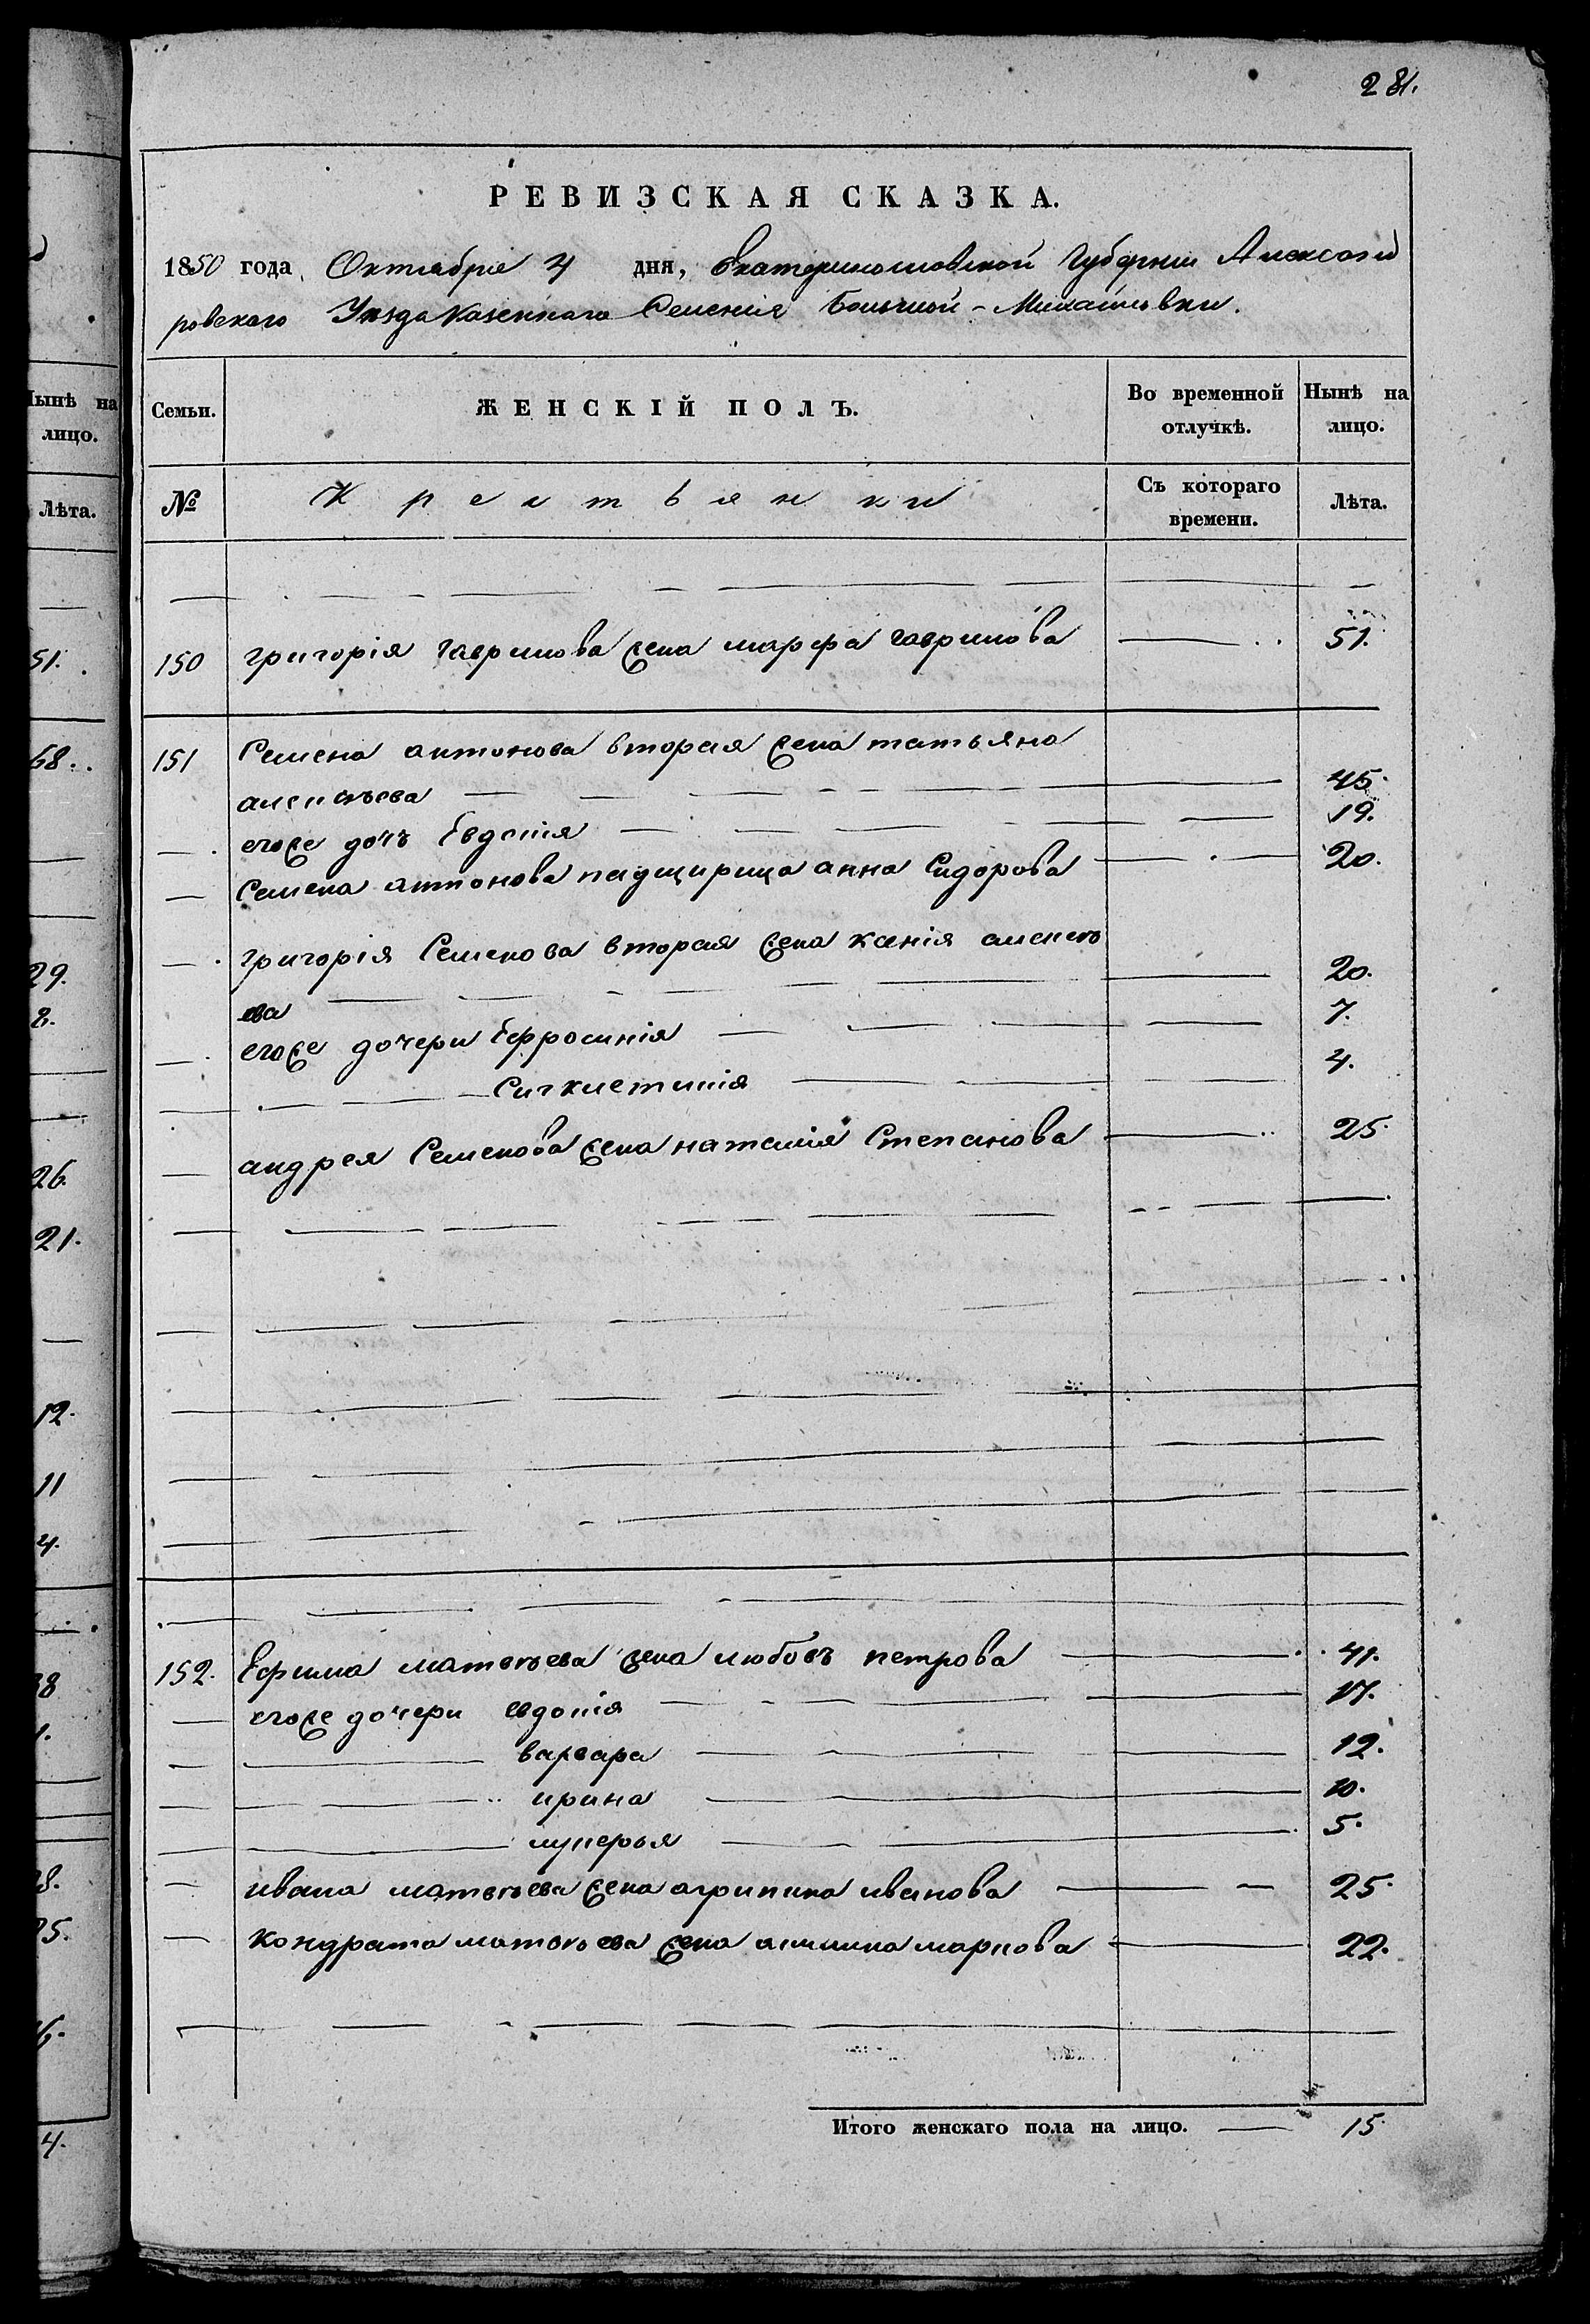 281.
РЕВИЗСКАЯ СКАЗКА.
1850 года, Октября 4 дня, Екатеринославской Губернии Александ
ровского Уезда Казенного Селения Большой-Михайловки.
Семьи. ЖЕНСКІЙ ПОЛЪ. Во временной отлучкѣ. Нынѣ на лицо.
№ Крестьянки Съ котораго времени. Лѣта.
150 григорія гаврилова жена марфа гаврилова 51.
151 Семена антонова вторая жена татьяна
алексѣева 45.
егоже дочь Евдокія 19.
Семена антонова падщирица анна Сидорова 20.
григорія Семенова вторая жена ксенія алексѣ
ева 20.
егоже дочери Ефросинія 7.
Сигклетикія 4.
андрея Семенова жена наталія Степанова 25.
152. Ефима матвѣева жена любовъ петрова 41.
егоже дочери евдокія 17.
варвара 12.
ирина 10.
лукерья 5.
ивана матвѣева жена агрипина иванова 25.
кондрата матвѣева жена маркова 22.
Итого женскаго пола на лицо. 15.
Нынѣ на
лицо.
Лѣта.
51.
68.
29.
2.
26.
21.
12.
11
4.
4.